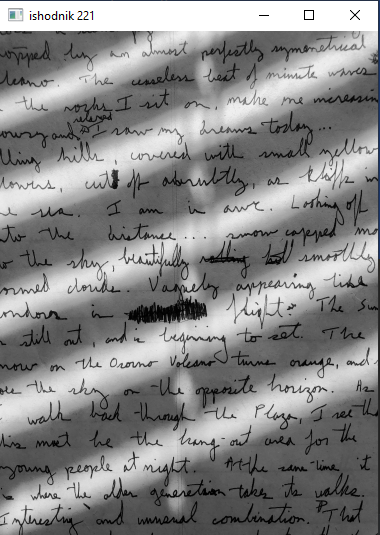 ishodnik 221
opped by an almost perfectly symmetrical
lcano. The ceaseless beat of minute waves
the rocks I sit on, make me increasin
owsy and relaxed I saw my dreams today...
lling hills, covered with small yellow
lowers, cut off abruptly, as cliffs in
e sea. I am in awe. Looking off
nto the distance... snow capped mo
o the sky, beautifully rolling smoothly
ormed clouds. Vaguely appearing like
ondors in flight. The Sun
still out, and is beginning to set. The
now on the Osorno Volcano turns orange, and
oes the sky on the opposite horizon. As
walk back through the Plaza, I see th
his must be the hang-out area for the
young people at night. At the same time, it
is where the older generation takes its walks.
Interesting and unusual combination. That